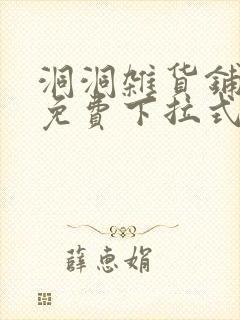 洞洞雜貨鋪
免費下拉式
薛惠娟